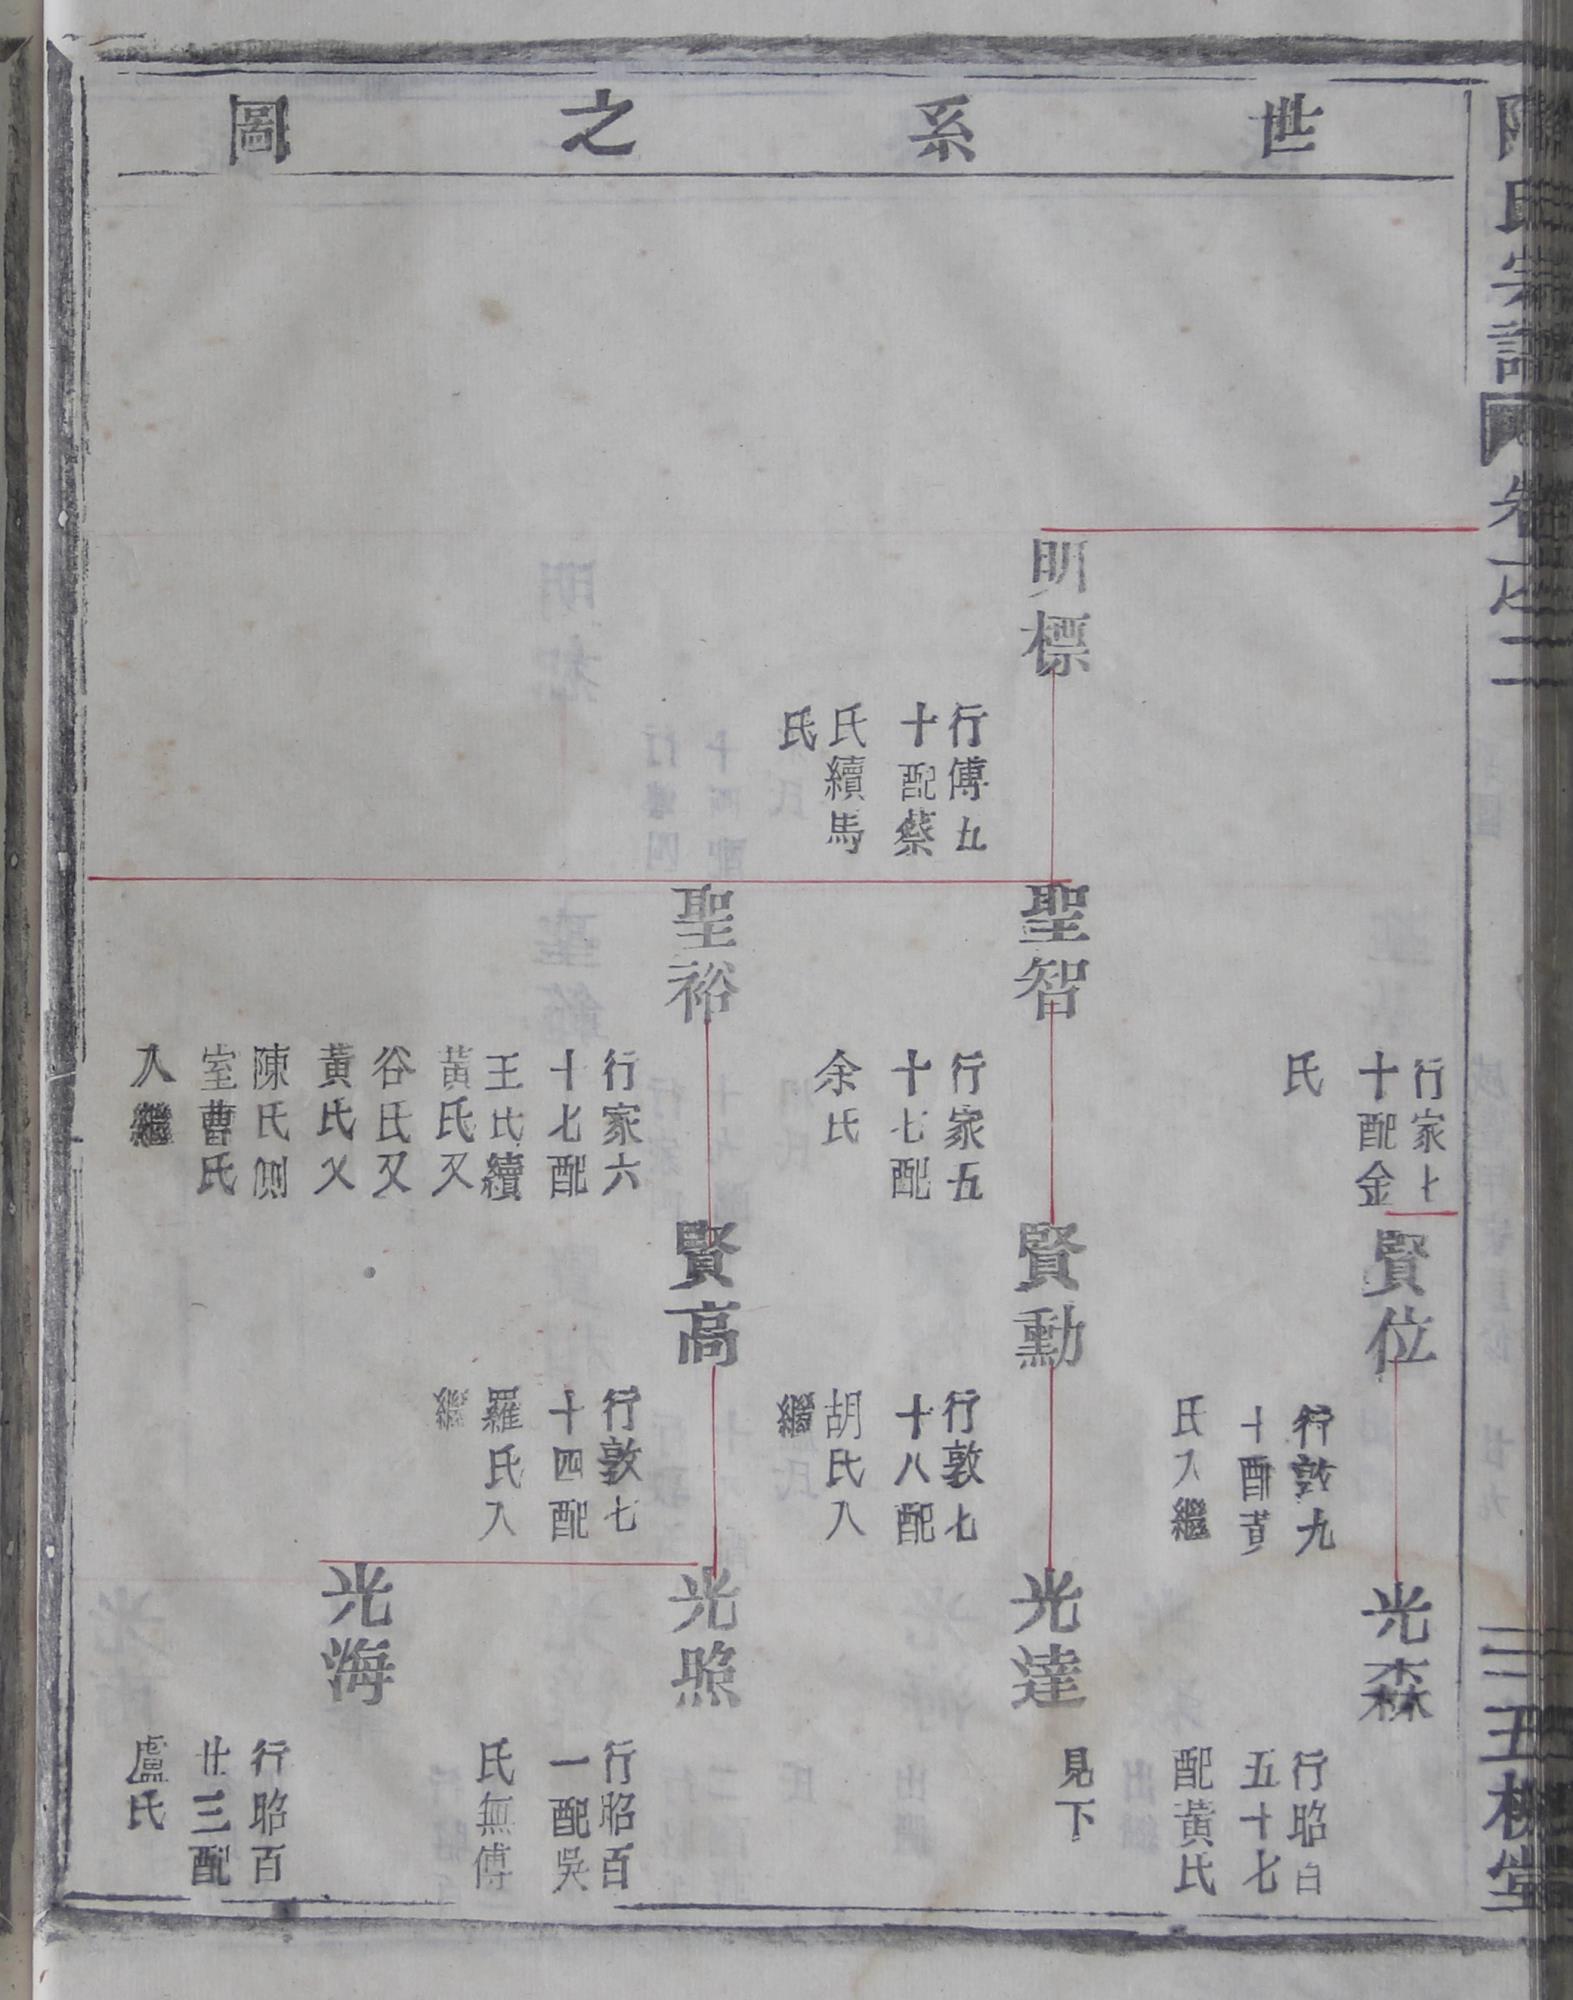 世系之圖
氏宗譜
卷之二
五柳堂
明標
行傅九
十配蔡
氏續馬
氏
行家七
十配金
氏
聖智
行家五
十七配
余氏
聖裕
行家六
十七配
王氏續
黃氏又
谷氏又
黃氏又
陳氏側
室曹氏
入繼
賢位
行敦九
十配黃
氏入繼
賢勳
行敦七
十八配
胡氏入
繼
賢高
行敦七
十四配
羅氏入
繼
光森
行昭百
五十七
配黃氏
光達
見下
光照
行昭百
一配吳
氏無傳
光海
行昭百
廿三配
盧氏